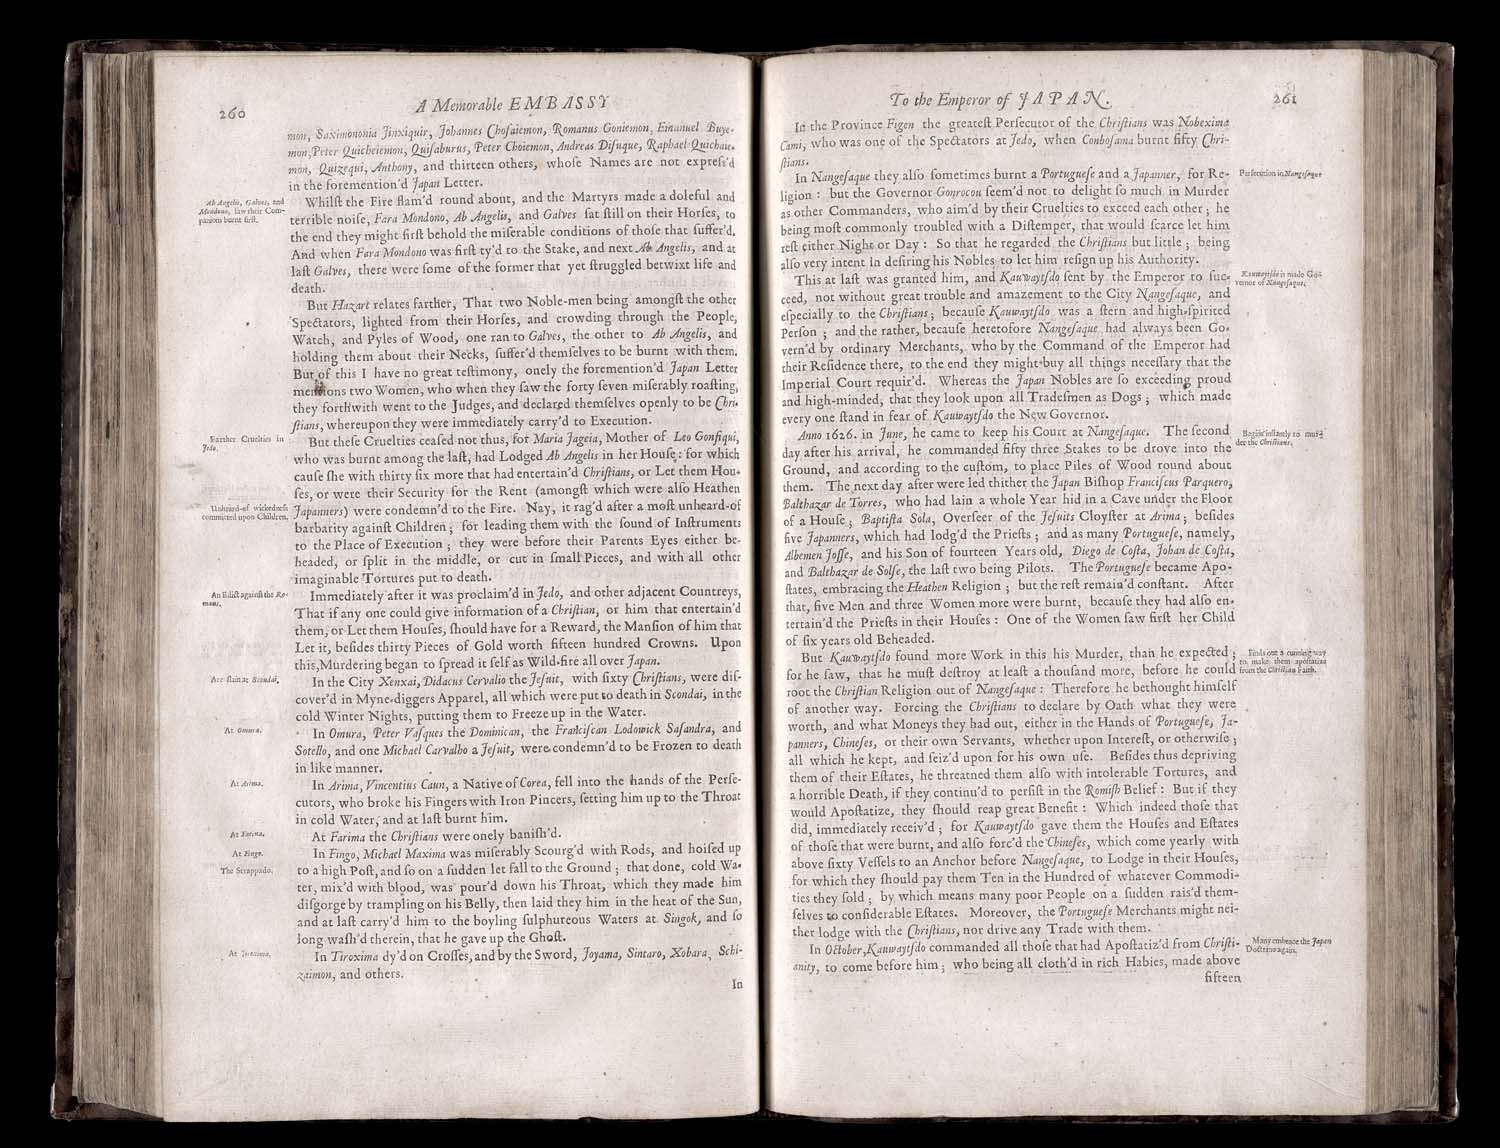 260
A Memorable EMBASSY
mon, Saximononia Jinxiquir, Johannes Choſaiemon, Romanus Goniemon, Emanuel Buye-
mon, Peter Quicheiemon, Quiſaburus, Peter Choiemon, Andreas Diſuque, Raphael Quichaie-
mon, Quizequi, Anthony, and thirteen others, whoſe Names are not expreſs'd
in the foremention'd Japan Letter.
Ab Angelis, Galves, and
Mondono, ſaw their Com-
panions burnt firſt.
Whilſt the Fire flam'd round about, and the Martyrs made a doleful and
terrible noiſe, Fara Mondono, Ab Angelis, and Galves ſat ſtill on their Horſes, to
the end they might firſt behold the miſerable conditions of thoſe that ſuffer'd.
And when Fara Mondono was firſt ty'd to the Stake, and next Ab Angelis, and at
laſt Galves, there were ſome of the former that yet ſtruggled betwixt life and
death.
But Hazart relates farther, That two Noble-men being amongſt the other
Spectators, lighted from their Horſes, and crowding through the People,
Watch, and Pyles of Wood, one ran to Galves, the other to Ab Angelis, and
holding them about their Necks, ſuffer'd themſelves to be burnt with them.
But of this I have no great teſtimony, onely the foremention'd Japan Letter
mentions two Women, who when they ſaw the forty ſeven miſerably roaſting,
they forthwith went to the Judges, and declared themſelves openly to be Chri-
ſtians, whereupon they were immediately carry'd to Execution.
Farther Cruelties in
Jedo.
But theſe Cruelties ceaſed not thus, for Maria Jageia, Mother of Leo Gonfiqui,
who was burnt among the laſt, had Lodged Ab Angelis in her Houſe: for which
cauſe ſhe with thirty ſix more that had entertain'd Chriſtians, or Let them Hou-
ſes, or were their Security for the Rent (amongſt which were alſo Heathen
Unheard-of wickedneſs
committed upon Children.
Japanners) were condemn'd to the Fire. Nay, it rag'd after a moſt unheard-of
barbarity againſt Children; for leading them with the ſound of Inſtruments
to the Place of Execution; they were before their Parents Eyes either be-
headed, or ſplit in the middle, or cut in ſmall Pieces, and with all other
imaginable Tortures put to death.
An Edict againſt the Ro-
mans.
Immediately after it was proclaim'd in Jedo, and other adjacent Countreys,
That if any one could give information of a Chriſtian, or him that entertain'd
them, or Let them Houſes, ſhould have for a Reward, the Manſion of him that
Let it, beſides thirty Pieces of Gold worth fifteen hundred Crowns. Upon
this, Murdering began to ſpread it ſelf as Wild-fire all over Japan.
Are ſlain at Scondai.
In the City Xenxai, Didacus Cervalio the Jeſuit, with ſixty Chriſtians, were diſ-
cover'd in Myne-diggers Apparel, all which were put to death in Scondai, in the
cold Winter Nights, putting them to Freeze up in the Water.
At Omura.
In Omura, Peter Vaſques the Dominican, the Franciſcan Lodowick Saſandra, and
Sotello, and one Michael Carvalho a Jeſuit, were condemn'd to be Frozen to death
in like manner.
At Arima.
In Arima, Vincentius Caun, a Native of Corea, fell into the hands of the Perſe-
cutors, who broke his Fingers with Iron Pincers, ſetting him up to the Throat
in cold Water, and at laſt burnt him.
At Farima.
At Farima the Chriſtians were onely baniſh'd.
At Fingo.
In Fingo, Michael Maxima was miſerably Scourg'd with Rods, and hoiſed up
The Strappado.
to a high Poſt, and ſo on a ſudden let fall to the Ground; that done, cold Wa-
ter, mix'd with blood, was pour'd down his Throat, which they made him
diſgorge by trampling on his Belly, then laid they him in the heat of the Sun,
and at laſt carry'd him to the boyling ſulphureous Waters at Singok, and ſo
long waſh'd therein, that he gave up the Ghoſt.
At Tiroxima.
In Tiroxima dy'd on Croſſes, and by the Sword, Joyama, Sintaro, Xobara, Schi-
zaimon, and others.
In
To the Emperor of JAPAN.
261
In the Province Figen the greateſt Perſecutor of the Chriſtians was Nobexima
Cami, who was one of the Spectators at Jedo, when Conboſama burnt fifty Chri-
ſtians.
Perſecution in Nangeſaque
In Nangeſaque they alſo ſometimes burnt a Portugueſe and a Japanner, for Re-
ligion: but the Governor Gonrocou ſeem'd not to delight ſo much in Murder
as other Commanders, who aim'd by their Cruelties to exceed each other; he
being moſt commonly troubled with a Diſtemper, that would ſcarce let him
reſt either Night or Day: So that he regarded the Chriſtians but little; being
alſo very intent in deſiring his Nobles to let him reſign up his Authority.
Kauwaytſdo is made Go-
vernor of Nangeſaque.
This at laſt was granted him, and Kauwaytſdo ſent by the Emperor to ſuc-
ceed, not without great trouble and amazement to the City Nangeſaque, and
eſpecially to the Chriſtians; becauſe Kauwaytſdo was a ſtern and high-ſpirited
Perſon; and the rather, becauſe heretofore Nangeſaque had always been Go-
vern'd by ordinary Merchants, who by the Command of the Emperor had
their Reſidence there, to the end they might buy all things neceſſary that the
Imperial Court requir'd. Whereas the Japan Nobles are ſo exceeding proud
and high-minded, that they look upon all Tradeſmen as Dogs; which made
every one ſtand in fear of Kauwaytſdo the New Governor.
Begins inſtantly to mur-
der the Chriſtians.
Anno 1626. in June, he came to keep his Court at Nangeſaque. The ſecond
day after his arrival, he commanded fifty three Stakes to be drove into the
Ground, and according to the cuſtom, to place Piles of Wood round about
them. The next day after were led thither the Japan Biſhop Franciſcus Parquero,
Balthazar de Torres, who had lain a whole Year hid in a Cave under the Floor
of a Houſe; Baptiſta Sola, Overſeer of the Jeſuits Cloyſter at Arima; beſides
five Japanners, which had lodg'd the Prieſts; and as many Portugueſe, namely,
Albemen Joſſe, and his Son of fourteen Years old, Diego de Coſta, Johan de Coſta,
and Balthazar de Solſe, the laſt two being Pilots. The Portugueſe became Apo-
ſtates, embracing the Heathen Religion; but the reſt remain'd conſtant. After
that, five Men and three Women more were burnt, becauſe they had alſo en-
tertain'd the Prieſts in their Houſes: One of the Women ſaw firſt her Child
of ſix years old Beheaded.
Finds out a cunning way
to make them apoſtatize
from the Chriſtian Faith.
But Kauwaytſdo found more Work in this his Murder, than he expected;
for he ſaw, that he muſt deſtroy at leaſt a thouſand more, before he could
root the Chriſtian Religion out of Nangeſaque: Therefore he bethought himſelf
of another way. Forcing the Chriſtians to declare by Oath what they were
worth, and what Moneys they had out, either in the Hands of Portugueſe, Ja-
panners, Chineſes, or their own Servants, whether upon Intereſt, or otherwiſe;
all which he kept, and ſeiz'd upon for his own uſe. Beſides thus depriving
them of their Eſtates, he threatned them alſo with intolerable Tortures, and
a horrible Death, if they continu'd to perſiſt in the Romiſh Belief: But if they
would Apoſtatize, they ſhould reap great Benefit: Which indeed thoſe that
did, immediately receiv'd; for Kauwaytſdo gave them the Houſes and Eſtates
of thoſe that were burnt, and alſo forc'd the Chineſes, which come yearly with
above ſixty Veſſels to an Anchor before Nangeſaque, to Lodge in their Houſes,
for which they ſhould pay them Ten in the Hundred of whatever Commodi-
ties they ſold; by which means many poor People on a ſudden rais'd them-
ſelves to conſiderable Eſtates. Moreover, the Portugueſe Merchants might nei-
ther lodge with the Chriſtians, nor drive any Trade with them.
Many embrace the Japan
Doctrine again.
In October, Kauwaytſdo commanded all thoſe that had Apoſtatiz'd from Chriſti-
anity, to come before him; who being all cloth'd in rich Habits, made above
fifteen